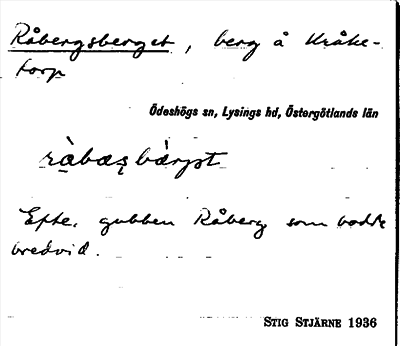 Råbergsberget, berg å Kråke-
torp
Ödeshögs sn, Lysings hd, Östergötlands län
Efter gubben Råberg som bodde
bredvid.
STIG STJÄRNE 1936